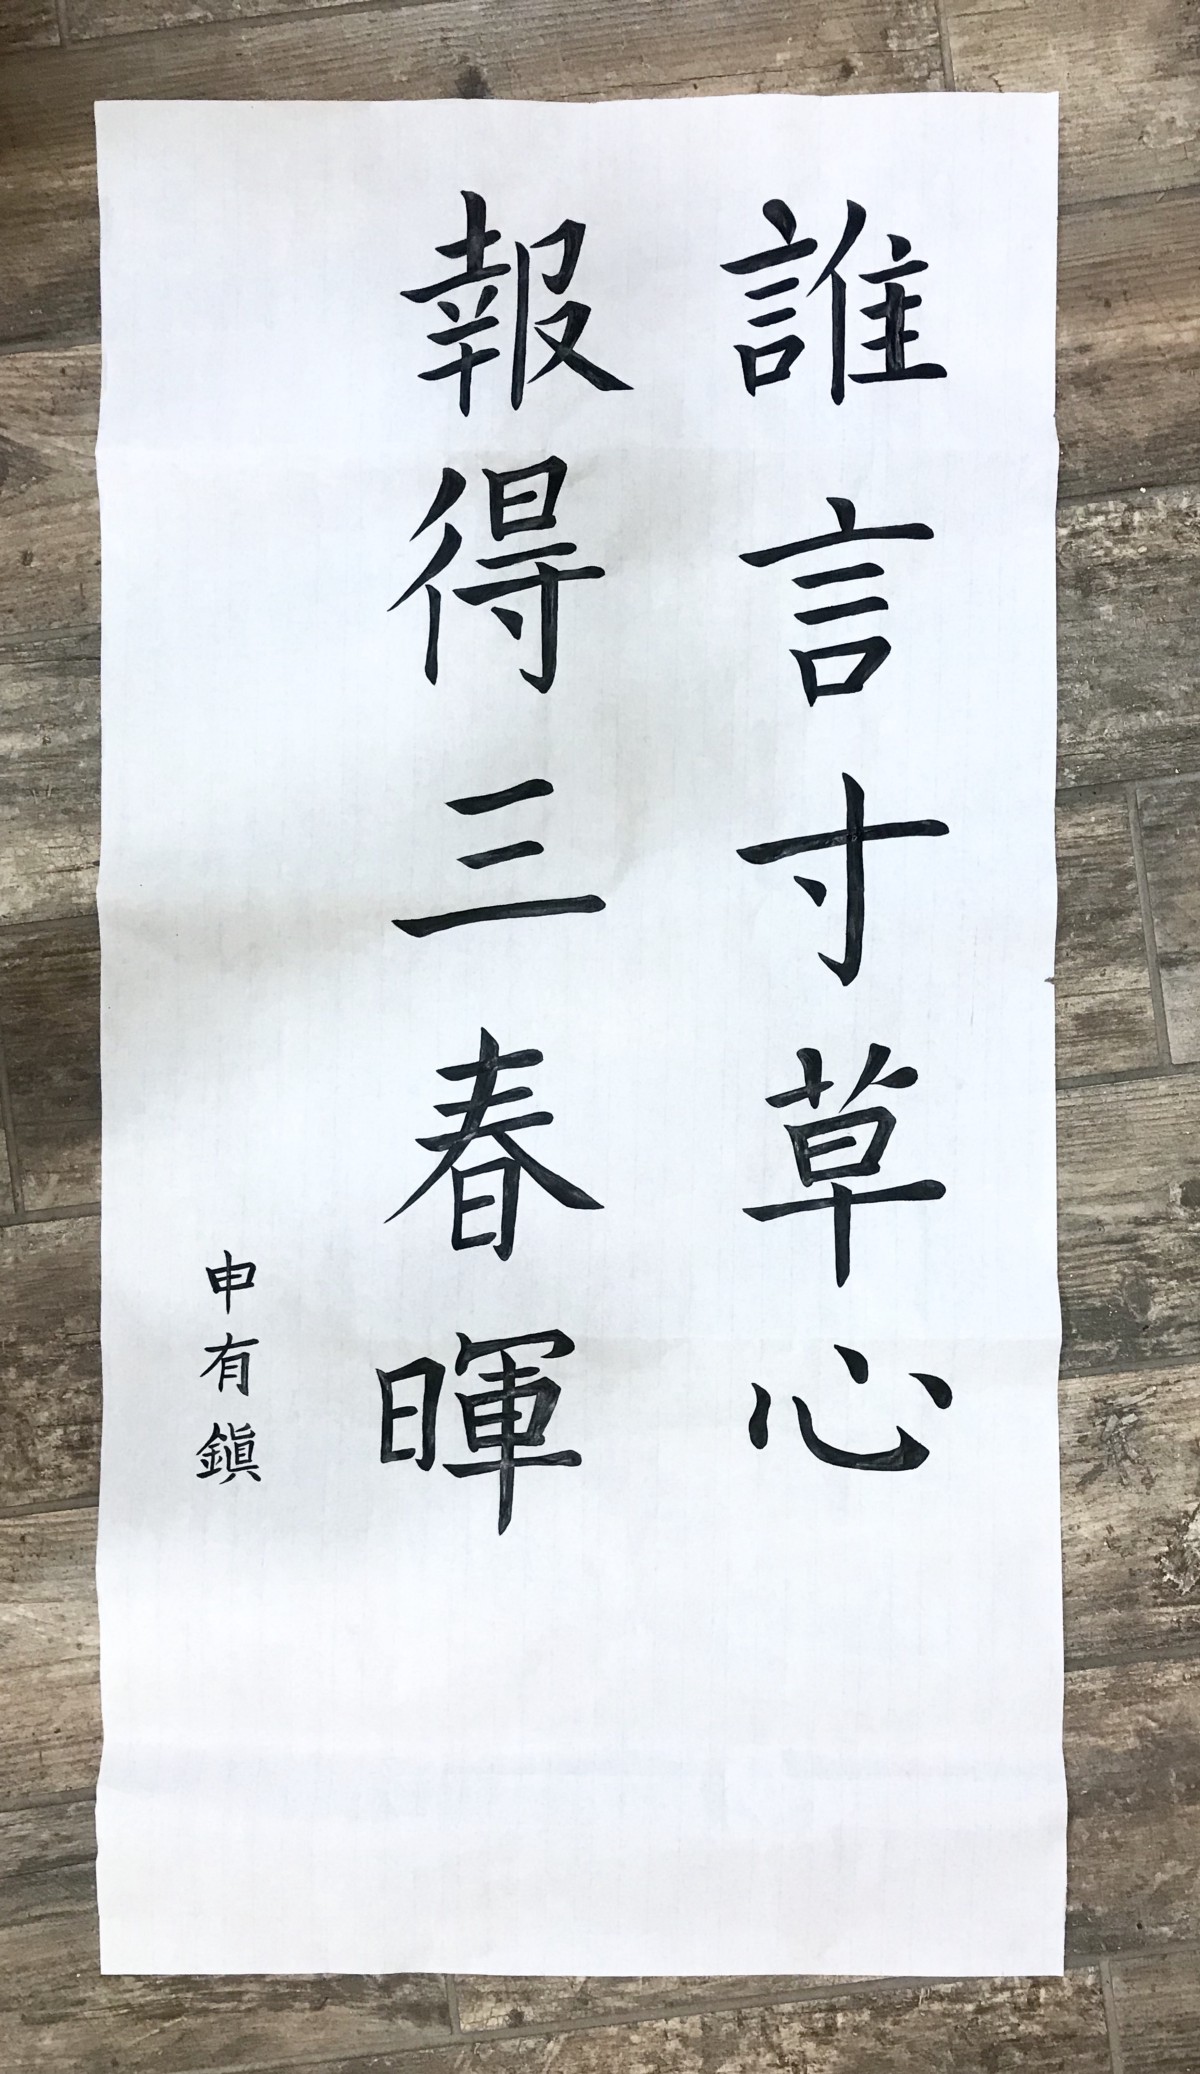 誰言寸草心
報得三春暉
申有鎭